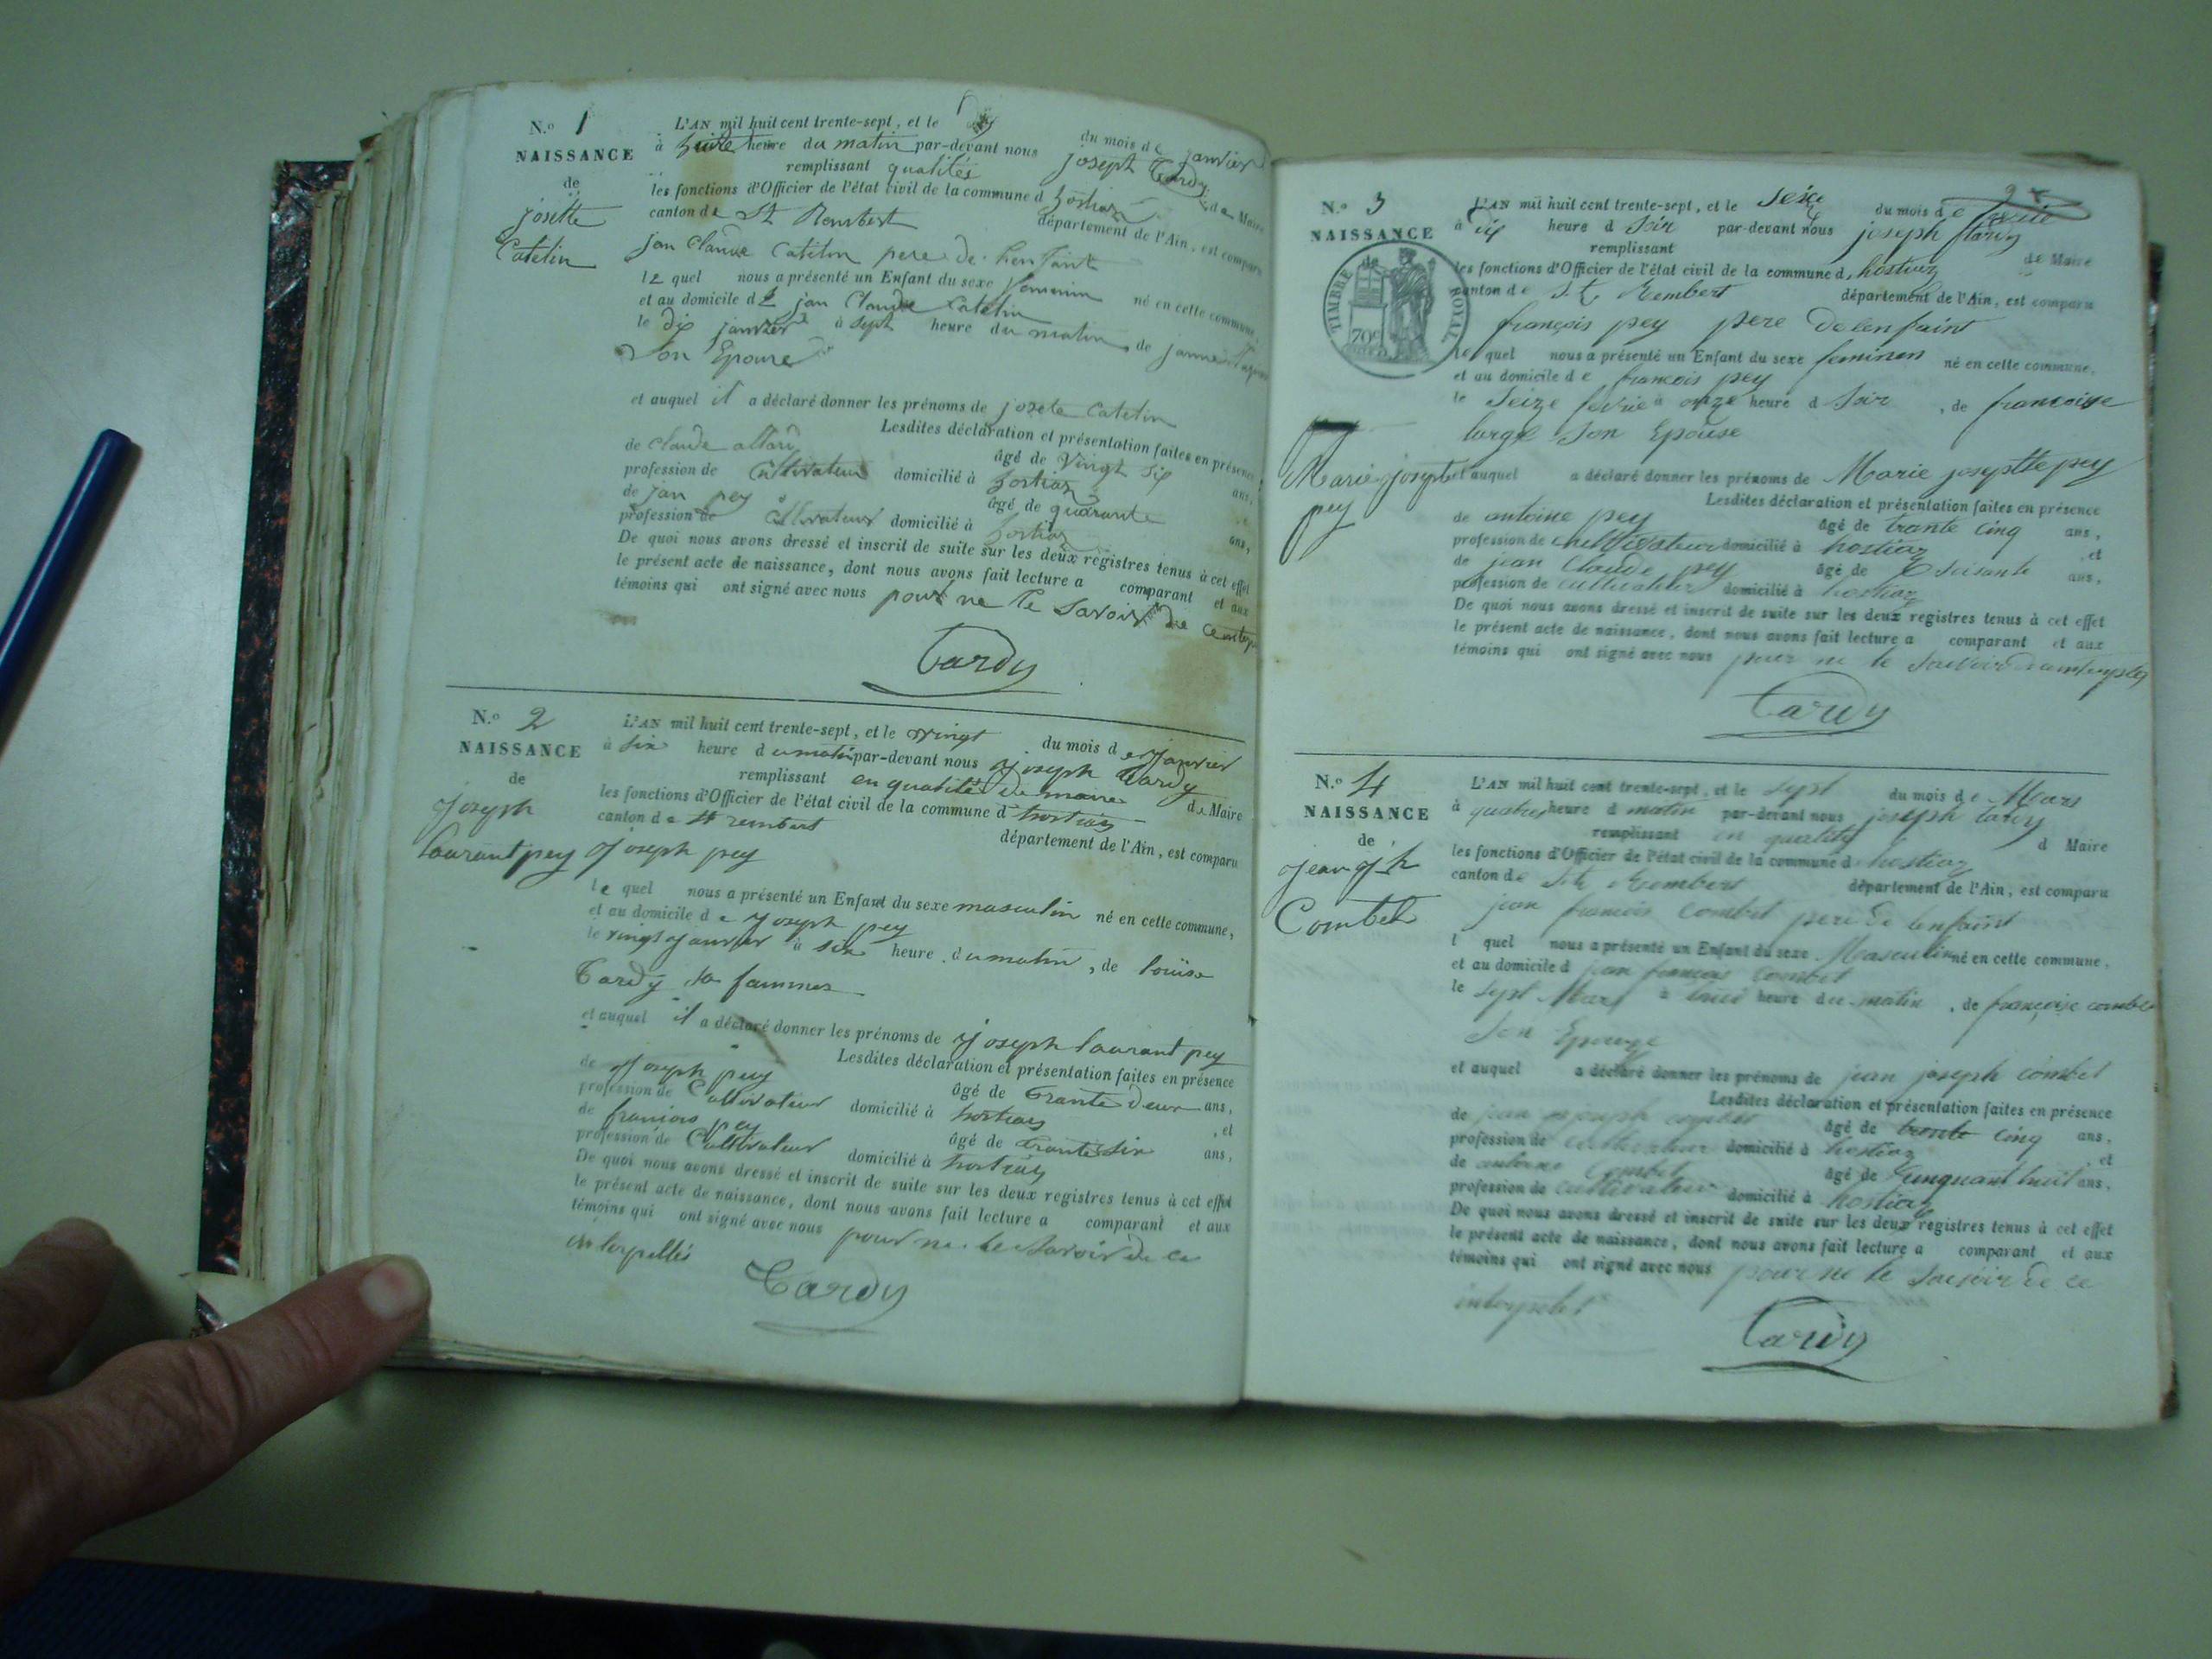 N.o 1
NAISSANCE
de
josette
Catelin
L'AN mil huit cent trente-sept, et le du mois de janvier
à huite heure du matin par-devant nous joseph Tardy
remplissant qualités de Maire
les fonctions d'Officier de l'état civil de la commune d hostiaz
canton de St Rambert département de l'Ain, est comparu
jan Claude Catelin pere de lenfant
le quel nous a présenté un Enfant du sexe femenin né en cette commune,
et au domicile de jan Claude Catelin
le dix janvier à sept heure du matin, de janne
Son Epouse
et auquel il a déclaré donner les prénoms de josete Catelin
Lesdites déclaration et présentation faites en présence
de Claude allard âgé de Vingt Six ans,
profession de Cultivateur domicilié à hostiaz
de jan pey âgé de quarante ans,
profession de Cultivateur domicilié à hostiaz
De quoi nous avons dressé et inscrit de suite sur les deux registres tenus à cet effet
le présent acte de naissance, dont nous avons fait lecture a comparant et aux
témoins qui ont signé avec nous pour ne le Savoir de ce
Tardy
N.o 2
NAISSANCE
de
Joseph
Laurant pey
L'AN mil huit cent trente-sept, et le vingt du mois de Janvier
à six heure du matin par-devant nous Joseph Tardy
remplissant en qualités de maire de Maire
les fonctions d'Officier de l'état civil de la commune d hostiaz
canton de St rembert département de l'Ain, est comparu
Joseph pey
le quel nous a présenté un Enfant du sexe masculin né en cette commune,
et au domicile de Joseph pey
le vingt Janvier à six heure du matin, de louise
Tardy sa fammes
et auquel il a déclaré donner les prénoms de Joseph laurant pey
Lesdites déclaration et présentation faites en présence
de Joseph pey âgé de trante deux ans,
profession de Cultivateur domicilié à hostiaz, et
de franiois pey âgé de trante six ans,
profession de Cultivateur domicilié à hostiaz
De quoi nous avons dressé et inscrit de suite sur les deux registres tenus à cet effet
le présent acte de naissance, dont nous avons fait lecture a comparant et aux
témoins qui ont signé avec nous pour ne le Savoir de ce
interpellés
Tardy
2
N.o 3
NAISSANCE
de
TIMBRE ROYAL
70c
Marie josephte
pey
L'AN mil huit cent trente-sept, et le Seize du mois de
à dix heure d Soir par-devant nous joseph tardy
remplissant de Maire
les fonctions d'Officier de l'état civil de la commune d hostiaz
canton de St Rembert département de l'Ain, est comparu
françois pey pere de lenfaint
le quel nous a présenté un Enfant du sexe feminen né en cette commune,
et au domicile de francois pey
le Seize fevrie à onze heure d Soir, de francoise
large Son Epouse
et auquel a déclaré donner les prénoms de Marie josephte pey
Lesdites déclaration et présentation faites en présence
de antoine pey âgé de trante cinq ans,
profession de cultivateur domicilié à hostiaz, et
de jean Claude pey âgé de Soisante ans,
profession de cultivateur domicilié à hostiaz
De quoi nous avons dressé et inscrit de suite sur les deux registres tenus à cet effet
le présent acte de naissance, dont nous avons fait lecture a comparant et aux
témoins qui ont signé avec nous pour ne le
Tardy
N.o 4
NAISSANCE
de
Jean Jh
Combet
L'AN mil huit cent trente-sept, et le Sept du mois de Mars
à quatre heure d matin par-devant nous joseph tardy
remplissant en quality d Maire
les fonctions d'Officier de l'état civil de la commune d hostiaz
canton de St Rembert département de l'Ain, est comparu
jean francois Combet pere de lenfaint
l quel nous a présenté un Enfant du sexe Masculin né en cette commune,
et au domicile d jean francois Combet
le Sept Mars à heure du matin, de francoise combet
Son Epouze
et auquel a déclaré donner les prénoms de jean joseph combet
Lesdites déclaration et présentation faites en présence
de jean joseph combet âgé de trente cinq ans,
profession de cultivateur domicilié à hostiaz, et
de antoine Combet âgé de Cinquant huit ans,
profession de cultivateur domicilié à hostiaz
De quoi nous avons dressé et inscrit de suite sur les deux registres tenus à cet effet
le présent acte de naissance, dont nous avons fait lecture a comparant et aux
témoins qui ont signé avec nous pour ne le Savoir de ce
interpelet
Tardy